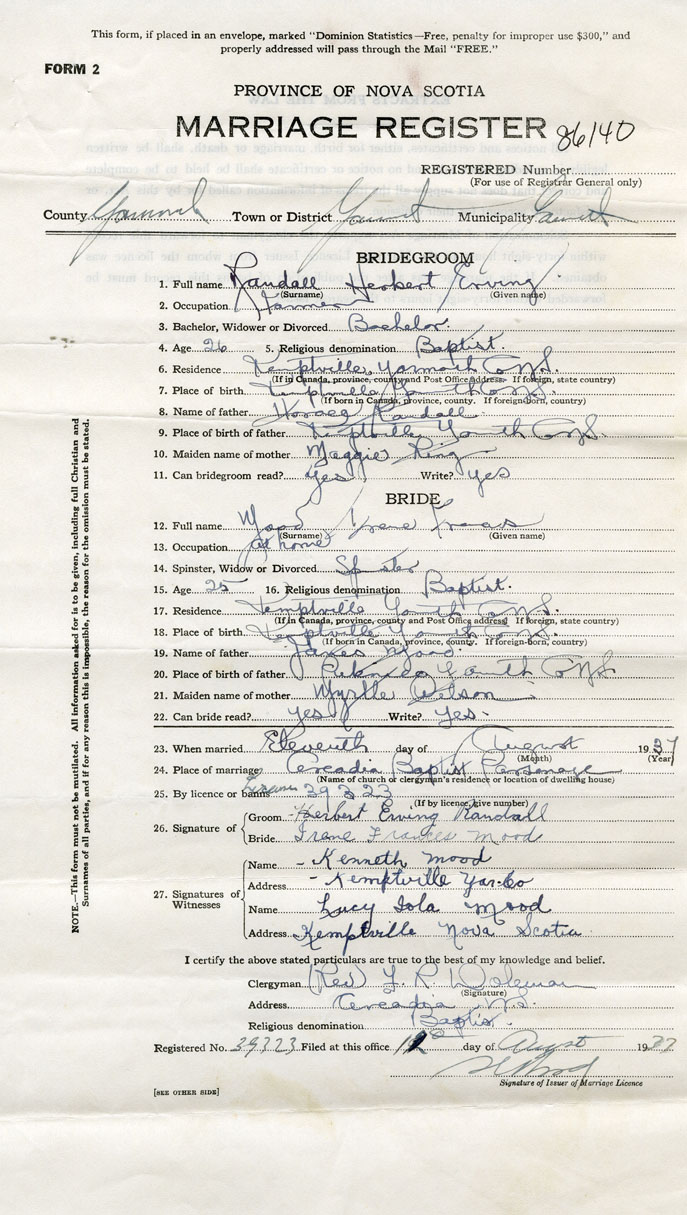 This form, if placed in an envelope, marked "Dominion Statistics—Free, penalty for improper use $300," and
properly addressed will pass through the Mail "FREE."
FORM 2
PROVINCE OF NOVA SCOTIA
MARRIAGE REGISTER 86/40
REGISTERED Number
(For use of Registrar General only)
County Yarmouth Town or District Municipality
BRIDEGROOM
1. Full name Randall Herbert Erving
(Surname) (Given name)
2. Occupation Farmer
3. Bachelor, Widower or Divorced Bachelor.
4. Age 26 5. Religious denomination Baptist.
6. Residence Kemptville, Yarmouth Co N.S.
(If in Canada, province, county and Post Office address. If foreign, state country)
7. Place of birth Kemptville Yarmouth Co N.S.
(If born in Canada, province, county. If foreign-born, country)
8. Name of father Horace Randall
9. Place of birth of father Kemptville Yarmouth Co N.S.
10. Maiden name of mother Maggie King
11. Can bridegroom read? Yes Write? Yes
BRIDE
12. Full name Mood Irene Frances
(Surname) (Given name)
13. Occupation At home
14. Spinster, Widow or Divorced Spinster
15. Age 25 16. Religious denomination Baptist.
17. Residence Kemptville Yarmouth Co N.S.
(If in Canada, province, county and Post Office address. If foreign, state country)
18. Place of birth Kemptville Yarmouth Co N.S.
(If born in Canada, province, county. If foreign-born, country)
19. Name of father James Mood
20. Place of birth of father Yarmouth Co N.S.
21. Maiden name of mother Myrtle
22. Can bride read? Yes Write? Yes.
23. When married Eleventh day of August 1937
(Month) (Year)
24. Place of marriage Arcadia Baptist Parsonage
(Name of church or clergyman's residence or location of dwelling house)
25. By licence or banns License 39323
(If by licence, give number)
26. Signature of Groom Herbert Erving Randall
Bride Irene Frances Mood
27. Signatures of Witnesses Name - Kenneth Mood
Address - Kemptville Yar. Co
Name Lucy Iola Mood
Address Kemptville Nova Scotia
I certify the above stated particulars are true to the best of my knowledge and belief.
Clergyman (Rev)
(Signature)
Address Arcadia N.S.
Religious denomination Baptist.
Registered No. 39323 Filed at this office day of August 1937
Signature of Issuer of Marriage Licence
[SEE OTHER SIDE]
NOTE.—This form must not be mutilated. All information asked for is to be given, including full Christian and
Surnames of all parties, and if for any reason this is impossible, the reason for the omission must be stated.